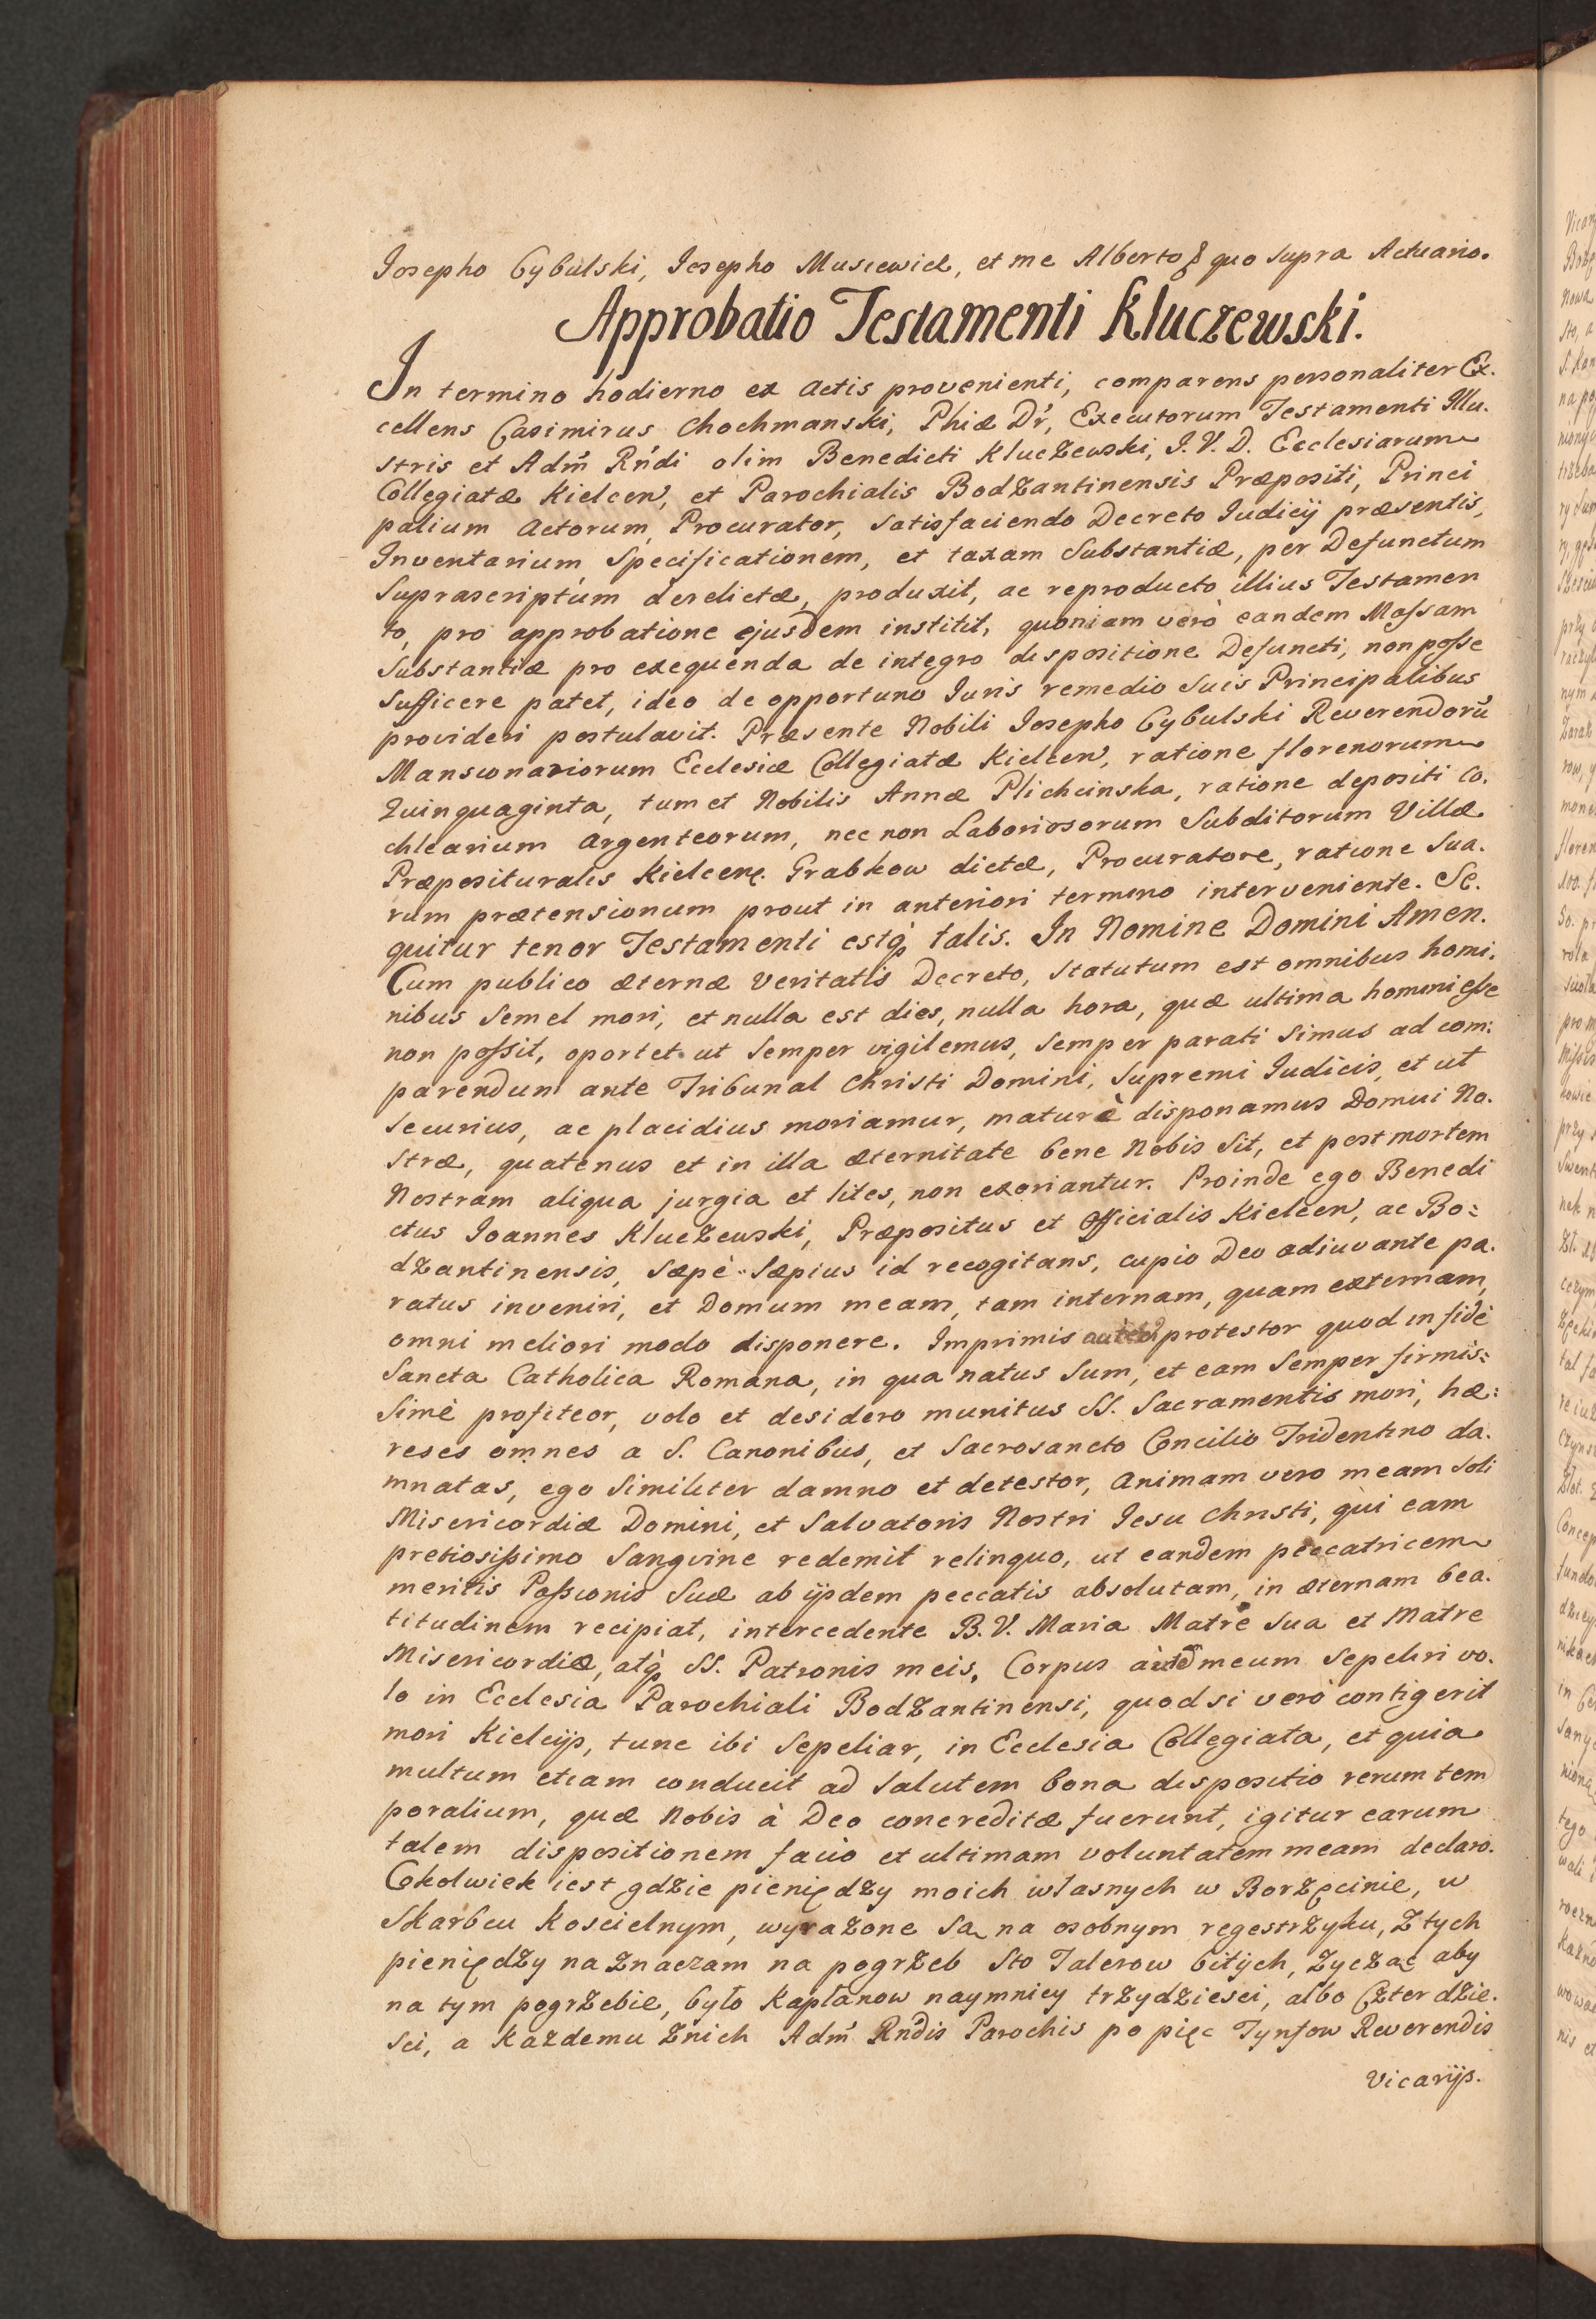 Josepho Cybulski, Josepho Musiewicz, et me Alberto quo supra Actuario.
Approbatio Testamenti Kluczewski.
In termino hodierno ex actis provenienti, comparens personaliter Ex.
cellens Casimirus Chochmanski, Phiæ Dr, Executorum Testamenti Illu.
stris et Adm̃ Rńdi olim Benedicti KlucZewski, J. V. D. Ecclesiarum
Collegiatæ Kielcen, et Parochialis BodZantinensis Præpositi, Princi
palium Actorum, Procurator, satisfaciendo Decreto Iudicij præsentis,
Inventarium, Specificationem, et taxam Substantiæ, per Defunctum
Suprascriptum derelictæ, produxit, ac reproducto illius Testamen
to, pro approbatione ejusdem institit, quoniam verò eandem Massam
Substantiæ pro exequenda de integro dispositione Defuncti, non posse
sufficere patet, ideo de opportuno Iuris remedio Suis Principalibus
provideri postulavit. Præsente Nobili Josepho Cybulski Reverendorũ
Mansionariorum Ecclesiæ Collegiatæ Kielcen, ratione florenorum
Quinquaginta, tum et Nobilis Annæ Plichcinska, ratione depositi Co.
chlearium argenteorum, nec non Laboriosorum Subditorum Villæ
Præposituralis Kielcen. Grabkow dictæ, Procuratore, ratione Sua.
rum prætensionum prout in anteriori termino interveniente. Se.
quitur tenor Testamenti estq; talis. In Nomine Domini Amen.
Cum publico æternæ Veritatis Decreto, statutum est omnibus homi.
nibus Semel mori, et nulla est dies, nulla hora, quæ ultima homini esse
non possit, oportet ut Semper vigilemus, Semper parati Simus ad com:
parendum ante Tribunal Christi Domini, Supremi Iudicis, et ut
securius, ac placidius moriamur, maturè disponamus Domui No.
stræ, quatenus et in illa æternitate bene Nobis Sit, et post mortem
Nostram aliqua jurgia et lites, non exoriantur. Proinde ego Benedi
ctus Ioannes KlucZewski, Præpositus et Officialis Kielcen, ac Bo:
dZantinensis, Sæpè Sæpius id recogitans, cupio Deo adiuvante pa.
ratus inveniri, et Domum meam, tam internam, quam externam,
omni meliori modo disponere. Imprimis autem protestor quod in fide
Sancta Catholica Romana, in qua natus Sum, et eam Semper firmis:
Simè profiteor, volo et desidero munitus SS. Sacramentis mori, hæ:
reses omnes a S. Canonibus, et Sacrosancto Concilio Tridentino da.
mnatas, ego Similiter damno et detestor, Animam vero meam Soli
Misericordiæ Domini, et Salvatoris Nostri Jesu Christi, qui eam
pretiosissimo Sangvine redemit relinquo, ut eandem peccatricem
meritis Passionis Suæ ab ijsdem peccatis absolutam, in æternam bea.
titudinem recipiat, intercedente B. V. Maria Matre Sua et Matre
Misericordiæ, atq; SS. Patronis meis. Corpus meum Sepeliri vo.
lo in Ecclesia Parochiali BodZantinensi, quod si verò contigerit
mori Kielcijs, tunc ibi Sepeliar, in Ecclesia Collegiata, et quia
multum etiam conducit ad Salutem bona dispositio rerum tem
poralium, quæ Nobis à Deo concreditæ fuerunt, igitur earum
talem dispositionem facio et ultimam voluntatem meam declaro.
Cokolwiek iest gdZie pieniędZy moich własnych w BorZęcinie, w
Skarbcu Koscielnym, wyraZone Są na osobnym regestrZyku, Z tych
pieniędZy naZnaczam na pogrZeb Sto Talerow bitych, ZycZąc aby
na tym pogrZebie, było Kapłanow naymniey trZydziesci, albo CZterdZie.
Sci, a KaZdemu Znich Adm̃ Rndis Parochis po pięc Tynfow Reverendis
Vicarijs.